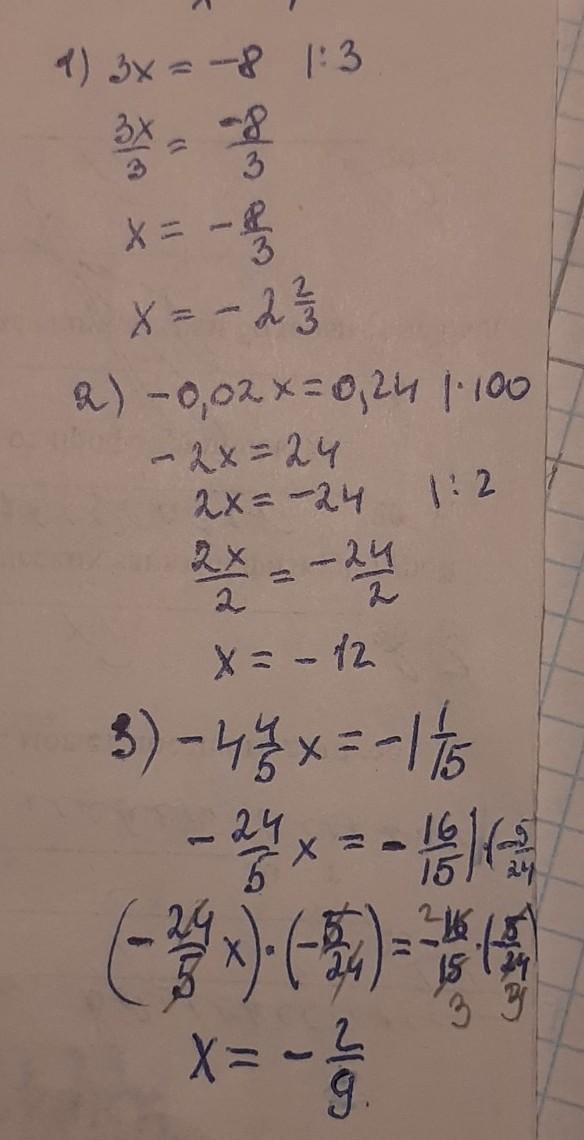 1) 3x = -8 |:3
3x/3 = -8/3
x = -8/3
x = -2 2/3
2) -0,02x = 0,24 |·100
-2x = 24
2x = -24 |:2
2x/2 = -24/2
x = -12
3) -4 4/5 x = -1 1/15
-24/5 x = -16/15 |·(-5/24
(-24/5 x)·(-5/24) = -16/15·(-5/24)
2
3 3
x = -2/9.